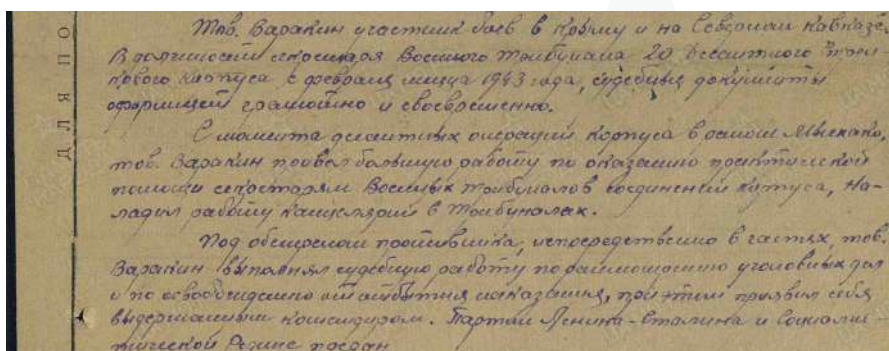 Тов. Варакин участник боев в Крыму и на Северном Кавказе.
В должности секретаря Военного Трибунала 20 Десантного Стрел-
кового корпуса с февраля месяца 1943 года, судебные документы
оформляет грамотно и своевременно.
С момента десантных операций корпуса в районе Мысхако,
тов. Варакин провел большую работу по оказанию практической
помощи секретарям Военных Трибуналов соединений корпуса, На-
ладил работу канцелярий в Трибуналах.
Под обстрелом противника, непосредственно в частях, тов.
Варакин выполнял судебную работу по рассмотрению уголовных дел
и по освобождению от отбытия наказания, при этом проявил себя
выдержанным командиром. Партии Ленина-Сталина и Социалис-
тической Родине предан
ДЛЯ ПО